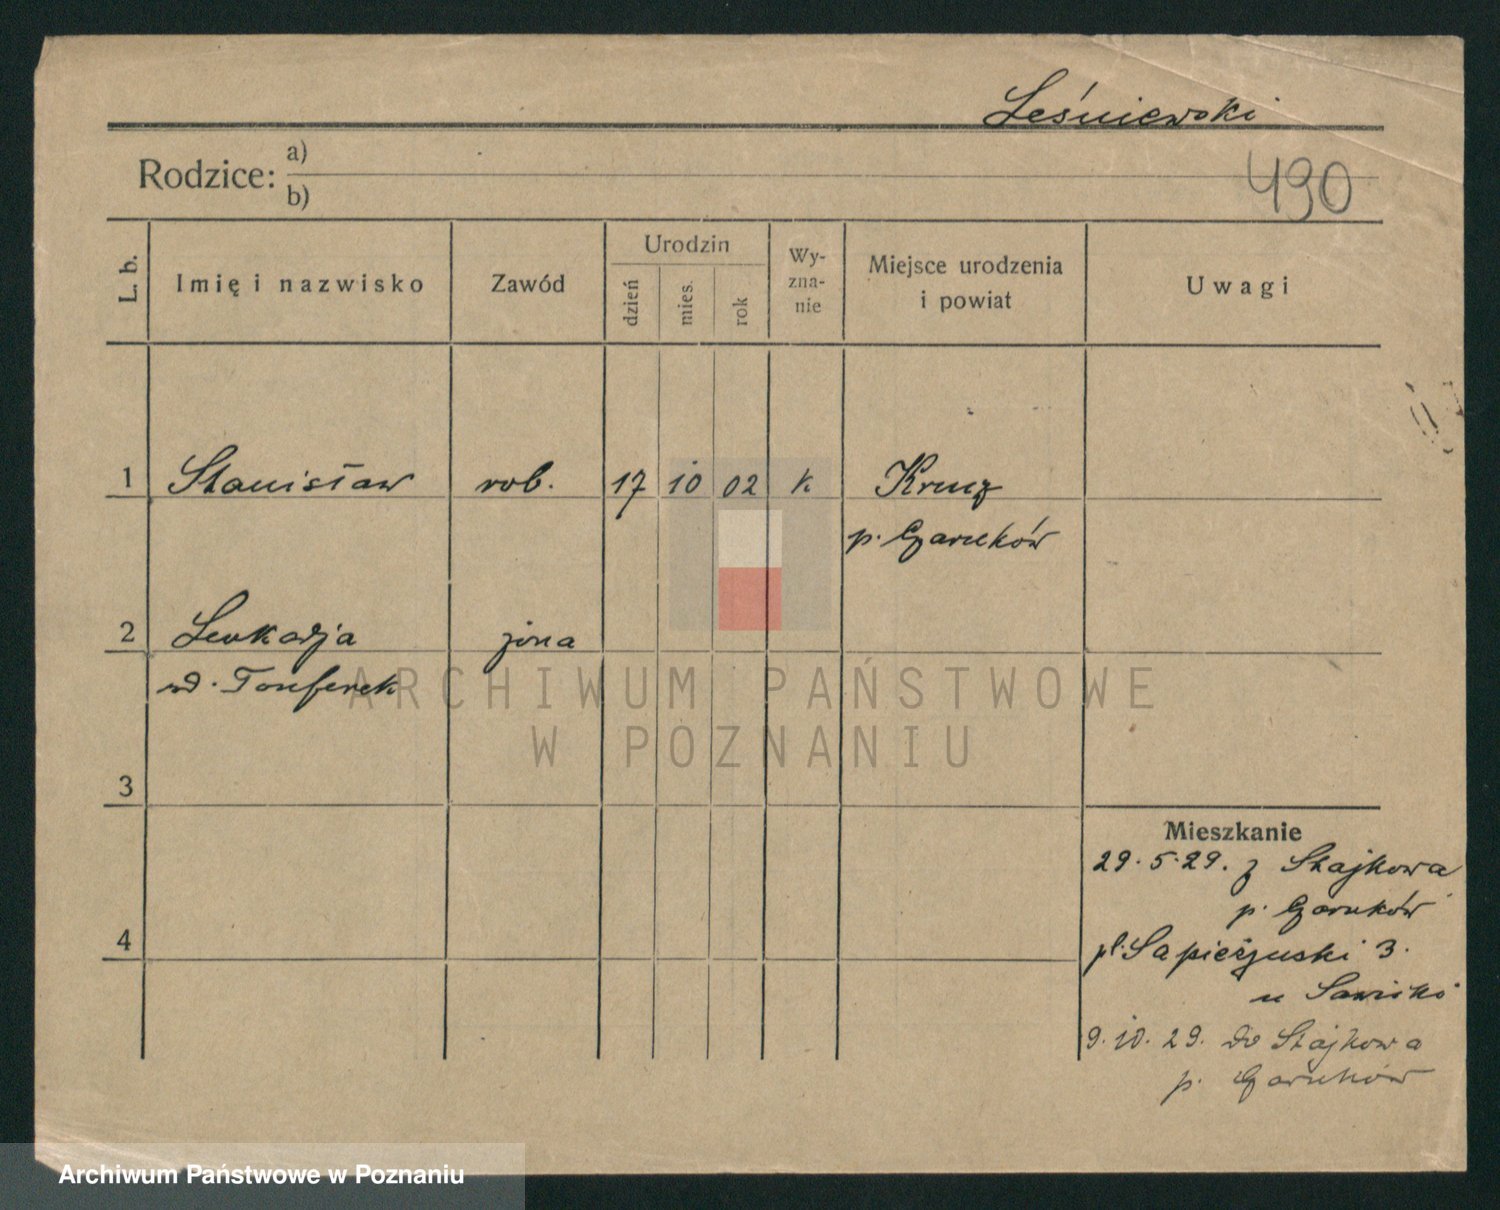 Leśniewski
Rodzice: a)
b)
490
L. b.
Imię i nazwisko
Zawód
Urodzin
dzień
mies.
rok
Wy-
zna-
nie
Miejsce urodzenia
i powiat
Uwagi
1 Stanisław rob. 17 10 02 k Krucz
p. Czarnków
2 Leukadja żona
wd. Tonferek
3
4
Mieszkanie
29.5.29. z Stajkowa
p. Czarnków
pl. Sapieżyński 3.
u
9.10.29. do Stajkowa
p. Czarnków
ARCHIWUM PAŃSTWOWE
W POZNANIU
Archiwum Państwowe w Poznaniu